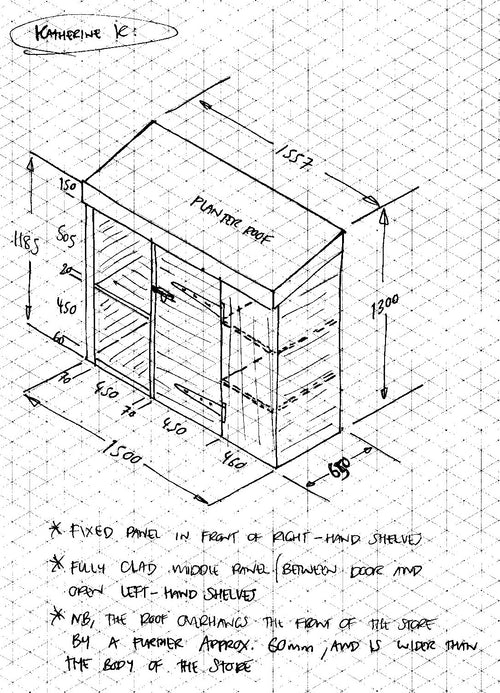 KATHERINE K.
1557
150
PLANTER ROOF
505
1185
20
1300
450
60
70
450
70
450
460
1500
650
* FIXED PANEL IN FRONT OF RIGHT-HAND SHELVES
* FULLY CLAD MIDDLE PANEL (BETWEEN DOOR AND
OPEN LEFT-HAND SHELVES
* NB, THE ROOF OVERHANGS THE FRONT OF THE STORE
BY A FURTHER APPROX. 60mm, AND IS WIDER THAN
THE BODY OF THE STORE